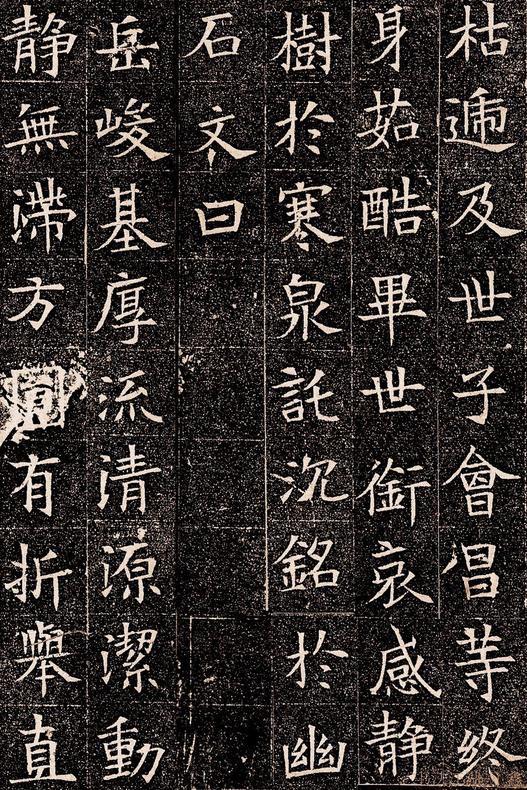 枯遞及世子會昌等終
身茹酷畢世銜哀感静
樹於寒泉託沉銘於幽
石文曰
岳峻基厚流清源潔動
静無滯方圓有折舉直